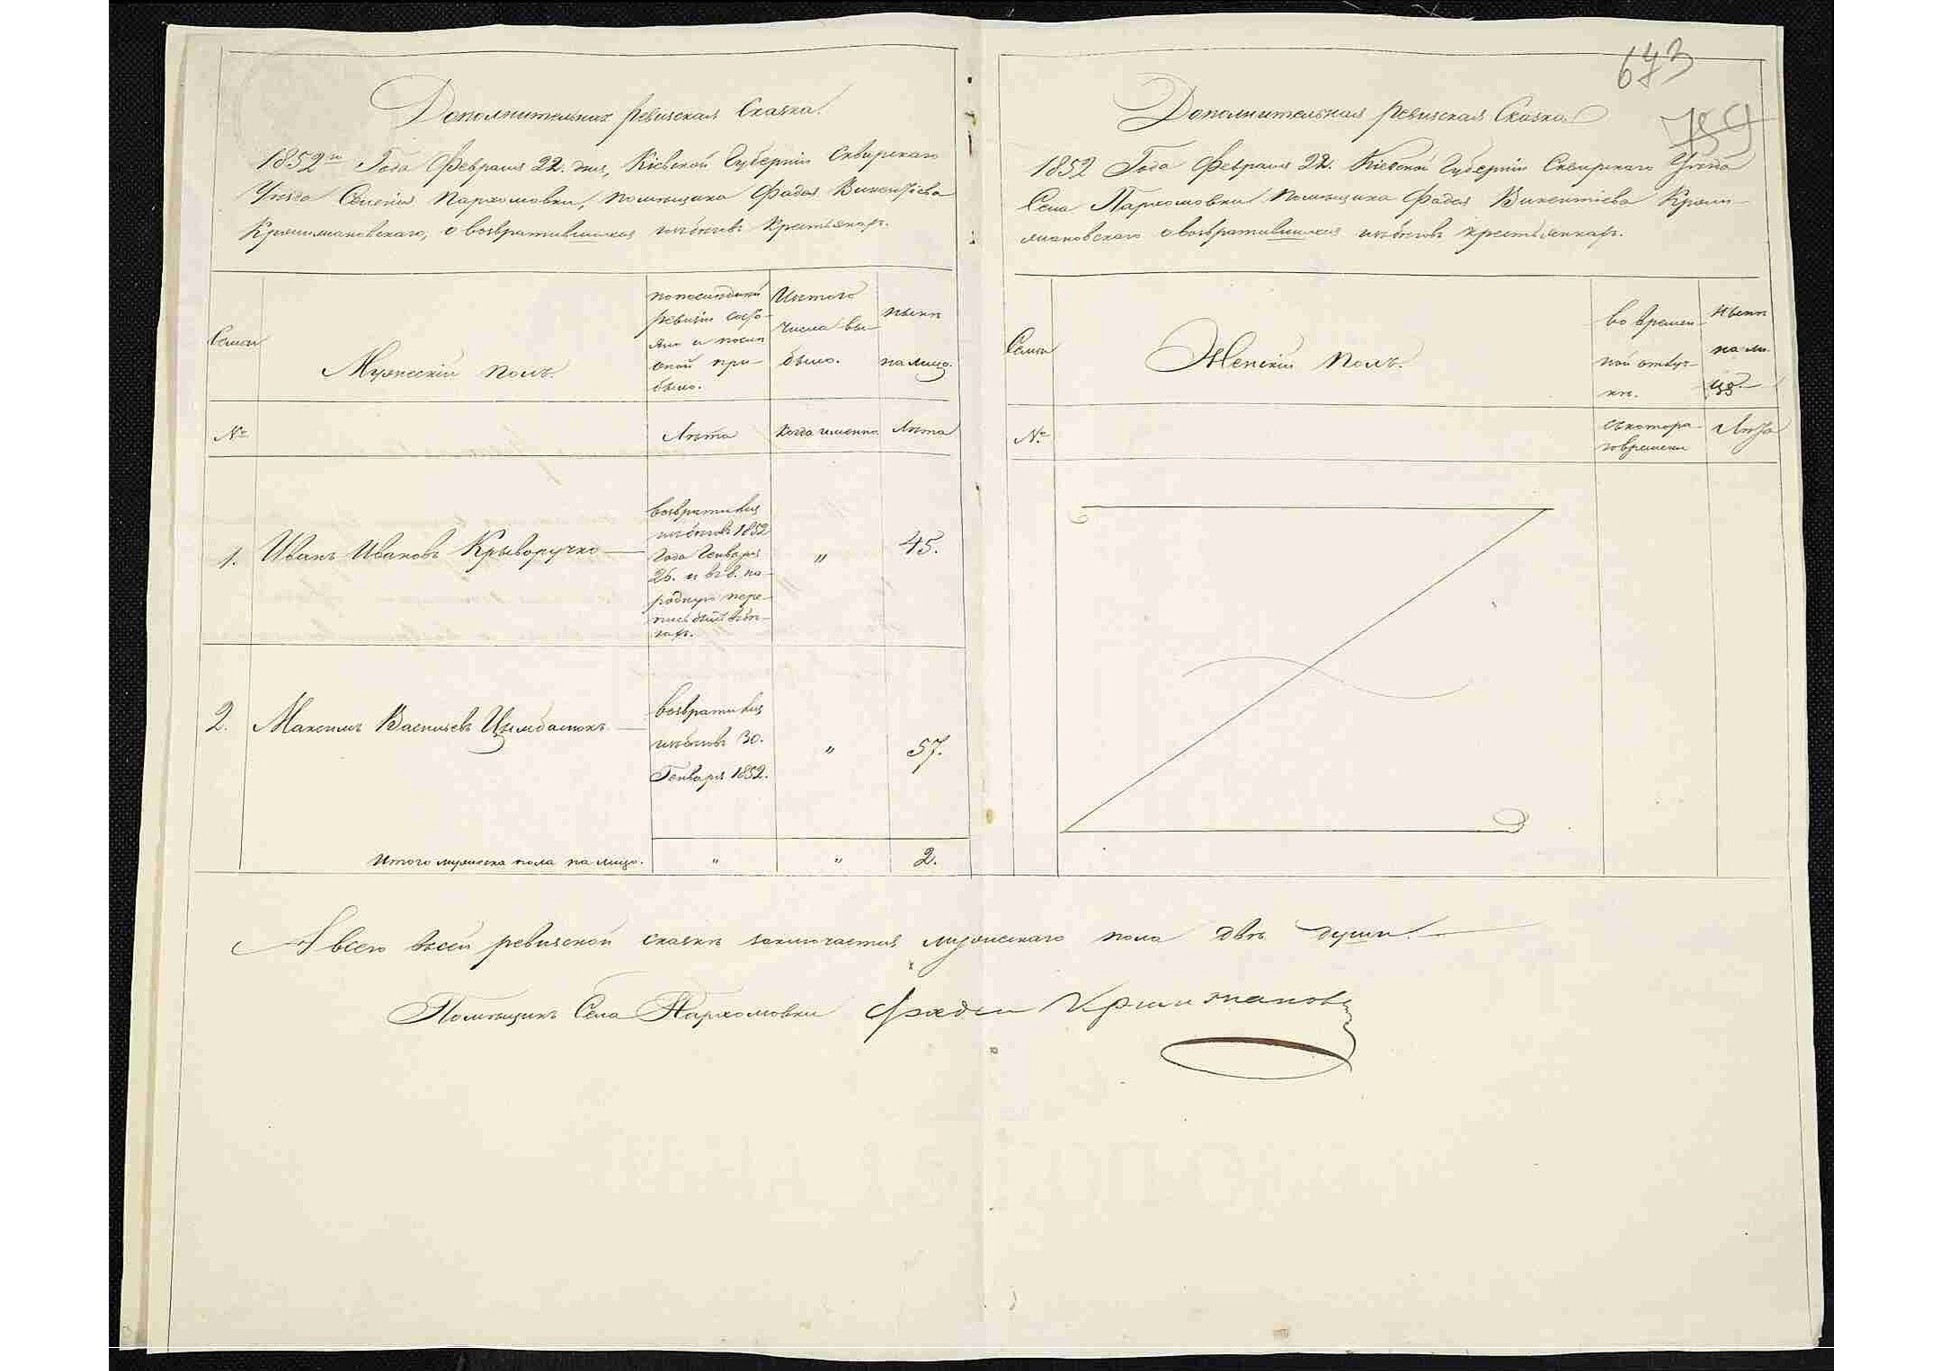 673
759
Дополнительная ревизская Сказка.
1852го Года Февраля 22. дня, Кіевской Губерніи Сквирскаго
Уѣзда Селенія Пархомовки, помѣщика Фадея Викентіева
Кришмановскаго, о возвратившихся изъ бѣговъ крестьянахъ.
Семьи
Мужескій полъ.
по последней
ревизіи состо-
яло и после
оной при-
было.
Изътого
числа вы-
было.
нынѣ
налицо.
№
Лѣта
Когда именно
Лѣта
1.
Иванъ Ивановъ Крыворучко
возвратился
изъбѣговъ 1852
Года Генваря
26. и въ 8. на-
родную пере-
пись былъ въ бѣ-
гахъ.
"
45.
2.
Максимъ Васильевъ Цымбалюкъ
возвратился
изъбѣговъ 30.
Генваря 1852.
"
57.
Итого мужеска пола на лицо.
"
"
2.
Дополнительная ревизская Сказка
1852 Года Февраля 22. Кіевской Губерніи Сквирскаго Уѣзда
Села Пархомовки Помѣщика Фадея Викентіева Криш-
мановскаго о возвратившихся изъ бѣговъ крестьянахъ.
Семьи
Женскій полъ.
во времен-
ной отлуч-
кѣ.
Нынѣ
на ли-
цо.
№
Съкотора-
го времени
Лѣта
А всего въсей ревизской сказкѣ заключается мужескаго пола двѣ души.
Помѣщикъ Села Пархомовки Фадей Кришмановс